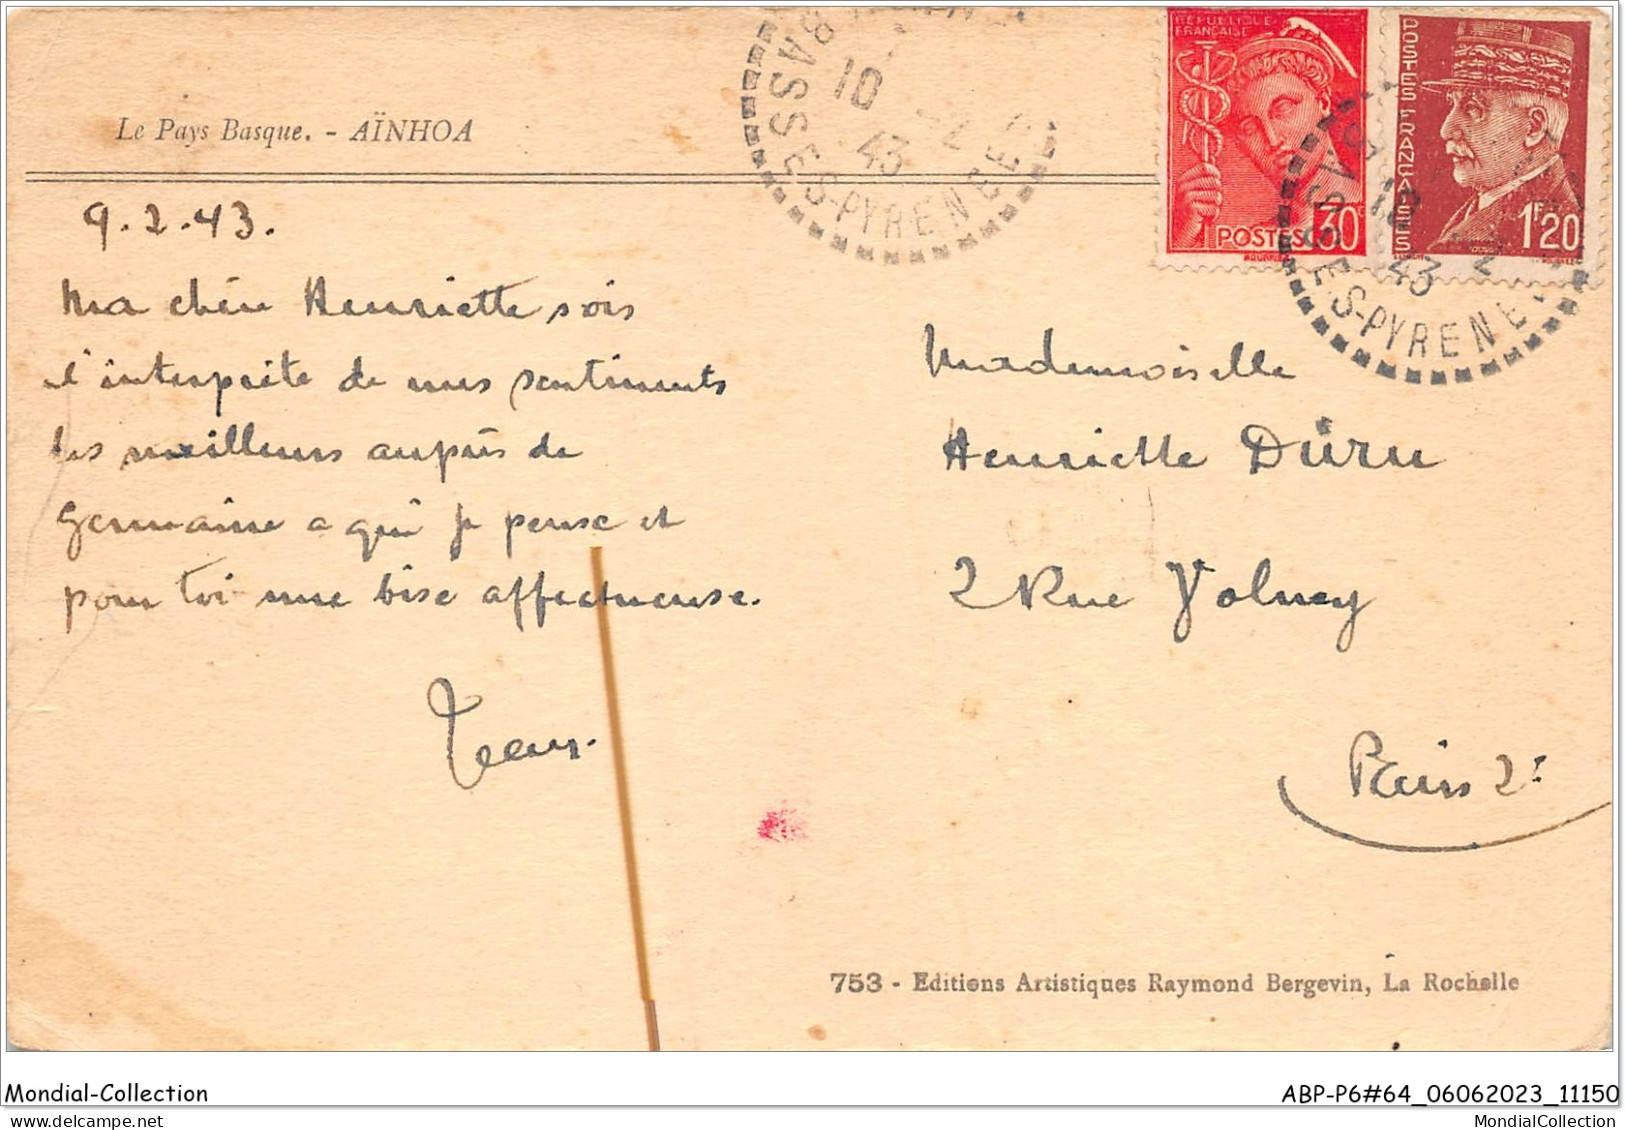 Le Pays Basque. - AÏNHOA
BASSES-PYRENEE
10 -2
43
RÉPUBLIQUE
FRANÇAISE
30c
POSTES
POSTES FRANÇAISES
1F20
BASSES-PYRENEE
10 -2
43
9.2.43.
Ma chère Henriette sois
l'interprète de mes sentiments
les meilleurs auprès de
Germaine a qui je pense et
pour toi une bise affectueuse.
Jean.
Mademoiselle
Henriette Düru
2 Rue Volney
Paris 2e
753 - Editions Artistiques Raymond Bergevin, La Rochelle
Mondial-Collection
ABP-P6#64_06062023_11150
MondialCollection